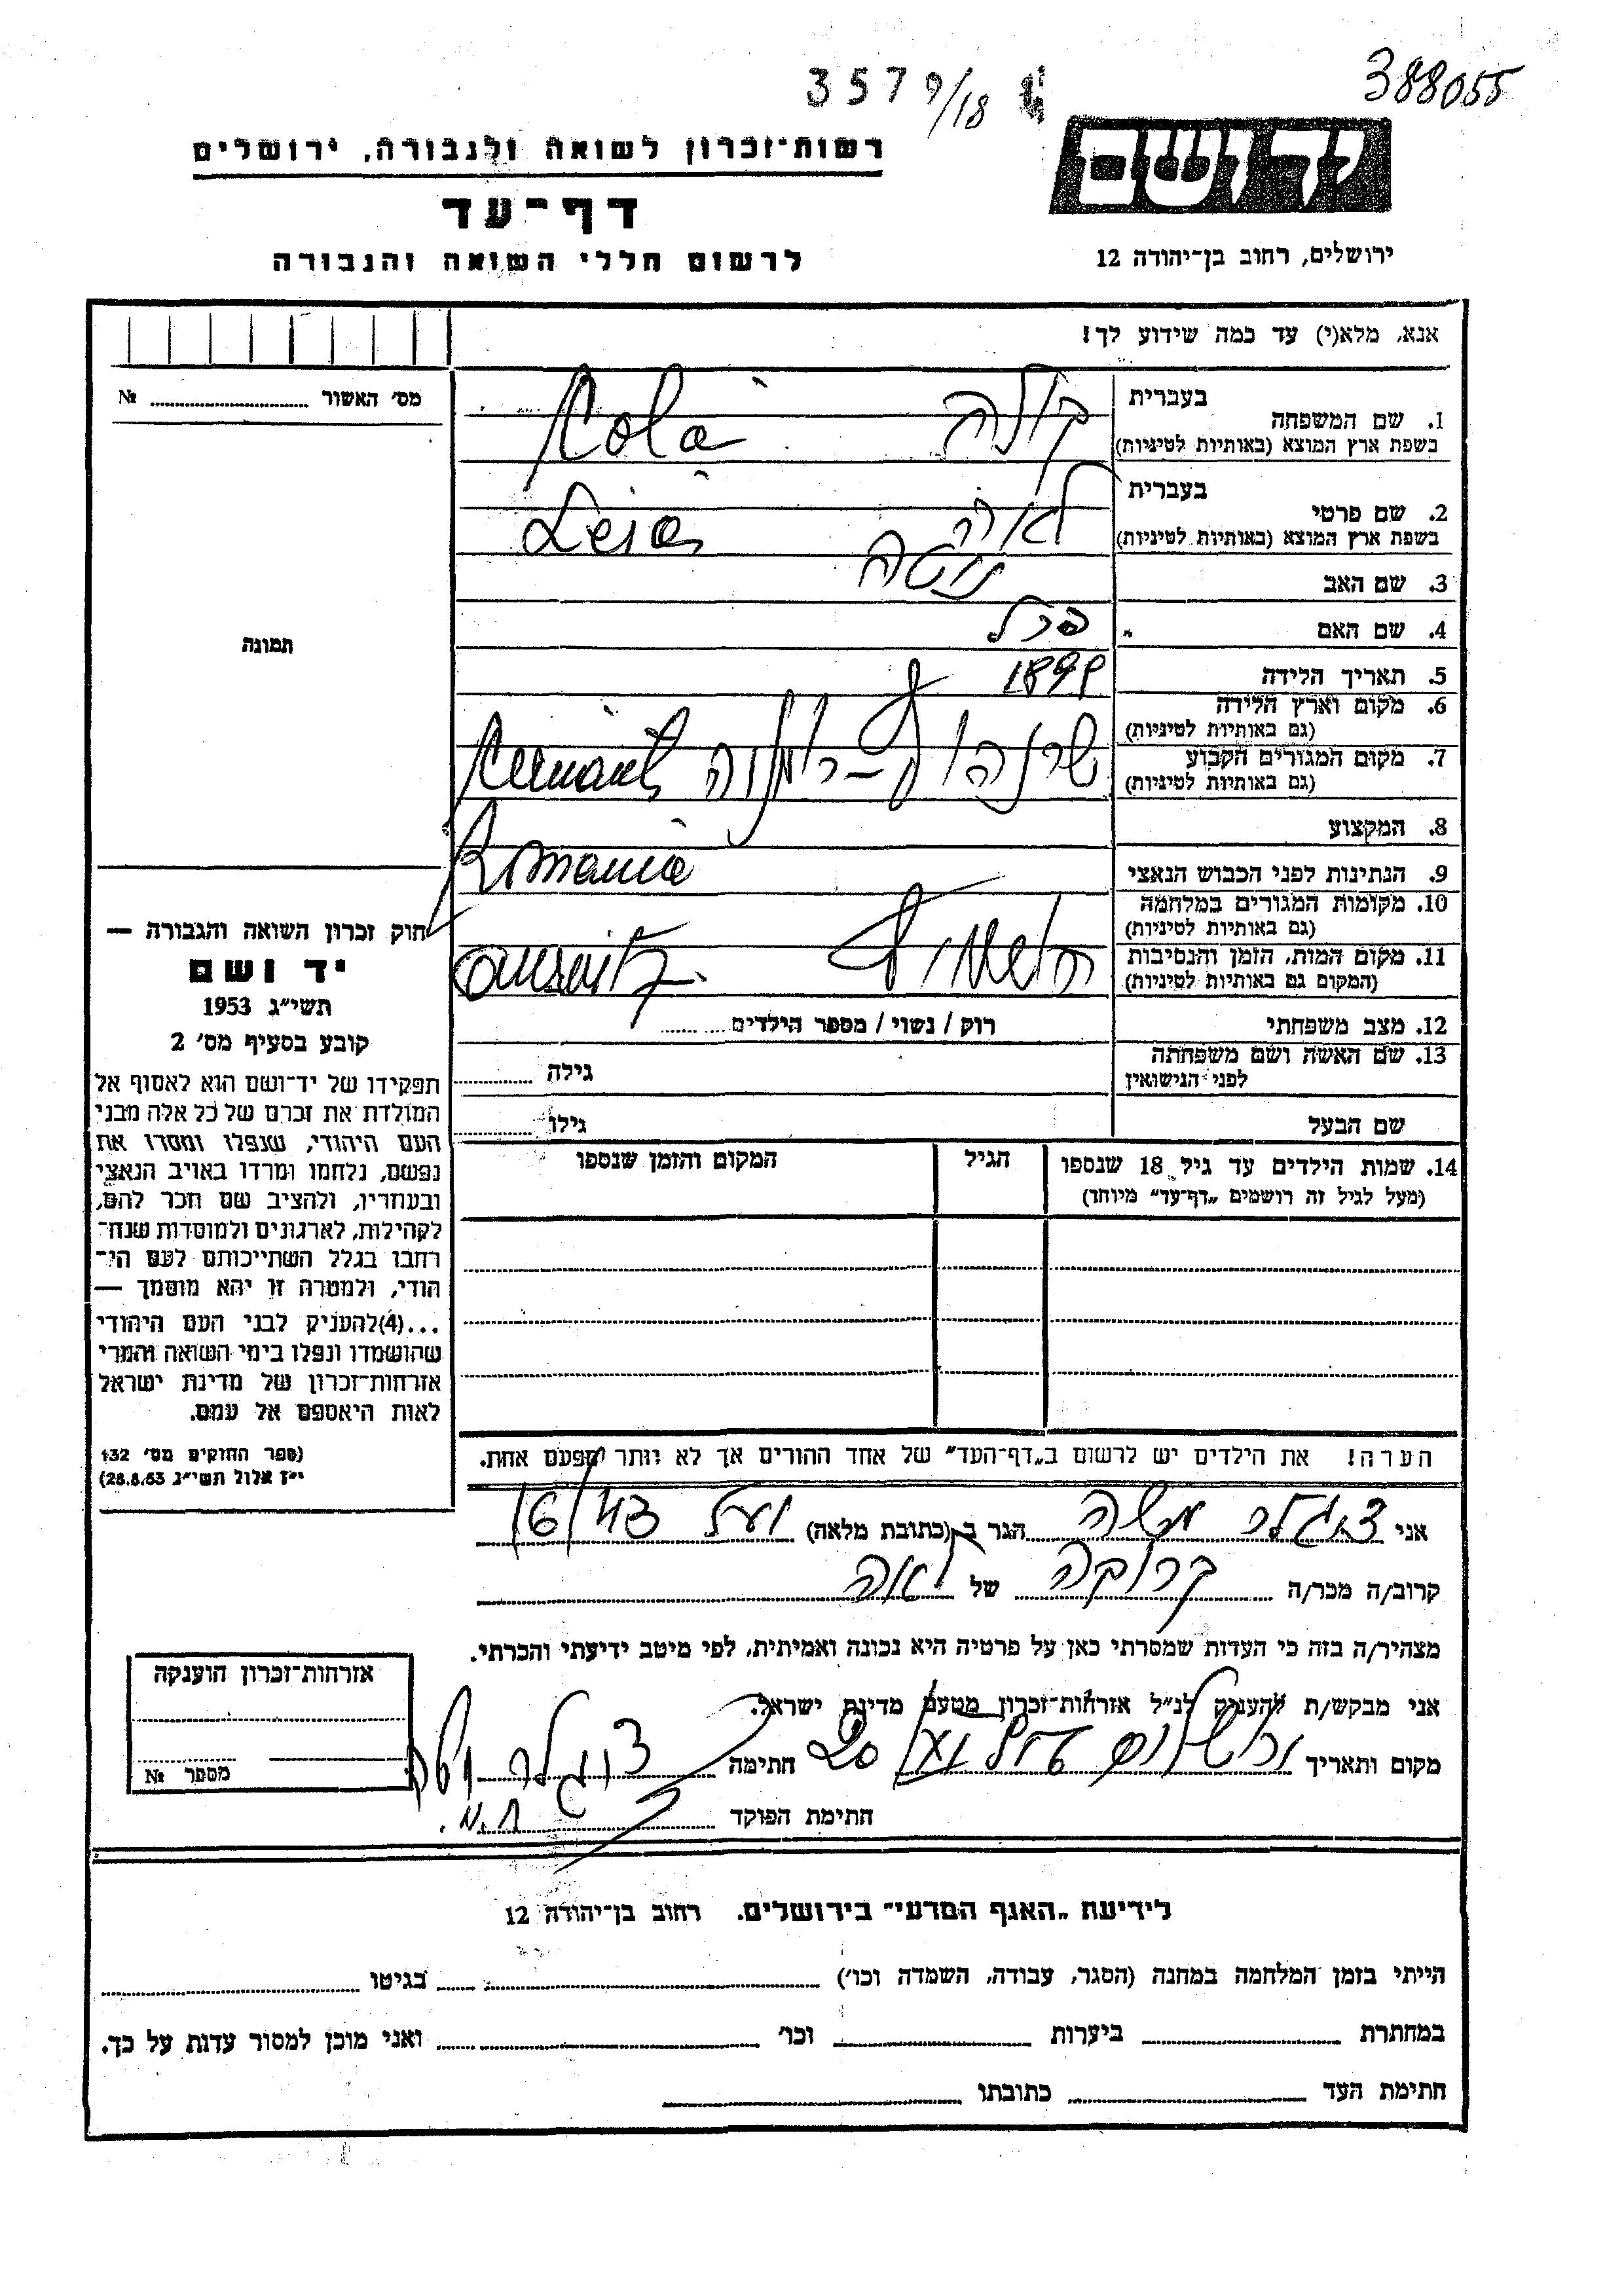 388055
3579/18
רשות־זכרון לשואה ולגבורה, ירושלים
יד ושם
דף־עד
לרשום חללי השואה והגבורה
ירושלים, רחוב בן־יהודה 12
אנא, מלא(י) עד כמה שידוע לך!
מס' האשור № 
1. שם המשפחה
בעברית
קולה
בשפת ארץ המוצא (באותיות לטיניות)
Kola
2. שם פרטי
בעברית
לאה
בשפת ארץ המוצא (באותיות לטיניות)
Leia
3. שם האב
4. שם האם
פרל
5. תאריך הלידה
1899
6. מקום וארץ הלידה
(גם באותיות לטיניות)
7. מקום המגורים הקבוע
(גם באותיות לטיניות)
8. המקצוע
9. הנתינות לפני הכבוש הנאצי
Romania
10. מקומות המגורים במלחמה
(גם באותיות לטיניות)
11. מקום המות, הזמן והנסיבות
(המקום גם באותיות לטיניות)
12. מצב משפחתי
רוק / נשוי / מספר הילדים
13. שם האשה ושם משפחתה
לפני הנישואין
גילה
שם הבעל
גילו
14. שמות הילדים עד גיל 18 שנספו
(מעל לגיל זה רושמים „דף־עד” מיוחד)
הגיל
המקום והזמן שנספו
תמונה
חוק זכרון השואה והגבורה —
יד ושם
תשי״ג 1953
קובע בסעיף מס' 2
תפקידו של יד־ושם הוא לאסוף אל
המולדת את זכרם של כל אלה מבני
העם היהודי, שנפלו ומסרו את
נפשם, נלחמו ומרדו באויב הנאצי
ובעוזריו, ולהציב שם וזכר להם,
לקהילות, לארגונים ולמוסדות שנח־
רבו בגלל השתייכותם לעם הי־
הודי, ולמטרה זו יהא מוסמך —
...(4)להעניק לבני העם היהודי
שהושמדו ונפלו בימי השואה והמרי
אזרחות־זכרון של מדינת ישראל
לאות היאספם אל עמם.
(ספר החוקים מס' 132
י״ז אלול תשי״ג 28.8.53)
הערה! את הילדים יש לרשום ב„דף־העד” של אחד ההורים אך לא יותר מפעם אחת.
אני משה הגר ב (כתובת מלאה) 16/43
קרוב/ה מכר/ה קרובה של לאה
מצהיר/ה בזה כי העדות שמסרתי כאן על פרטיה היא נכונה ואמיתית, לפי מיטב ידיעתי והכרתי.
אני מבקש/ת להעניק לנ״ל אזרחות־זכרון מטעם מדינת ישראל.
מקום ותאריך חתימה
חתימת הפוקד
אזרחות־זכרון הוענקה
מספר №
לידיעת „האגף המדעי” בירושלים. רחוב בן־יהודה 12
הייתי בזמן המלחמה במחנה (הסגר, עבודה, השמדה וכו') בגיטו
במחתרת ביערות וכו' ואני מוכן למסור עדות על כך.
חתימת העד כתובתו